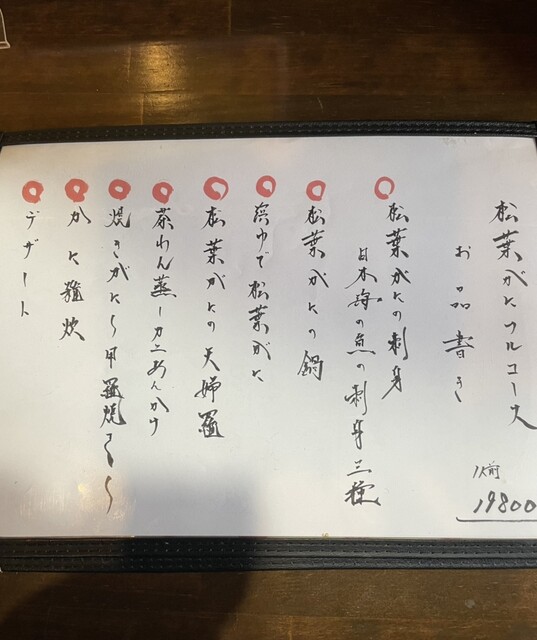 松葉がにフルコース
お品書き
1人前
19800
松葉がにの刺身
日本海の魚の刺身三種
松葉がにの鍋
浜ゆで松葉がに
松葉がにの天婦羅
茶わん蒸し カニあんかけ
焼きがに〜甲羅焼き〜
かに雑炊
デザート